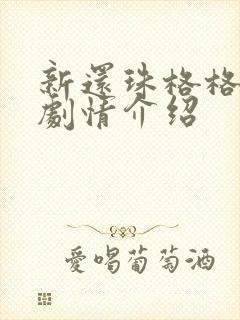 新還珠格格
劇情介紹
愛喝葡萄酒